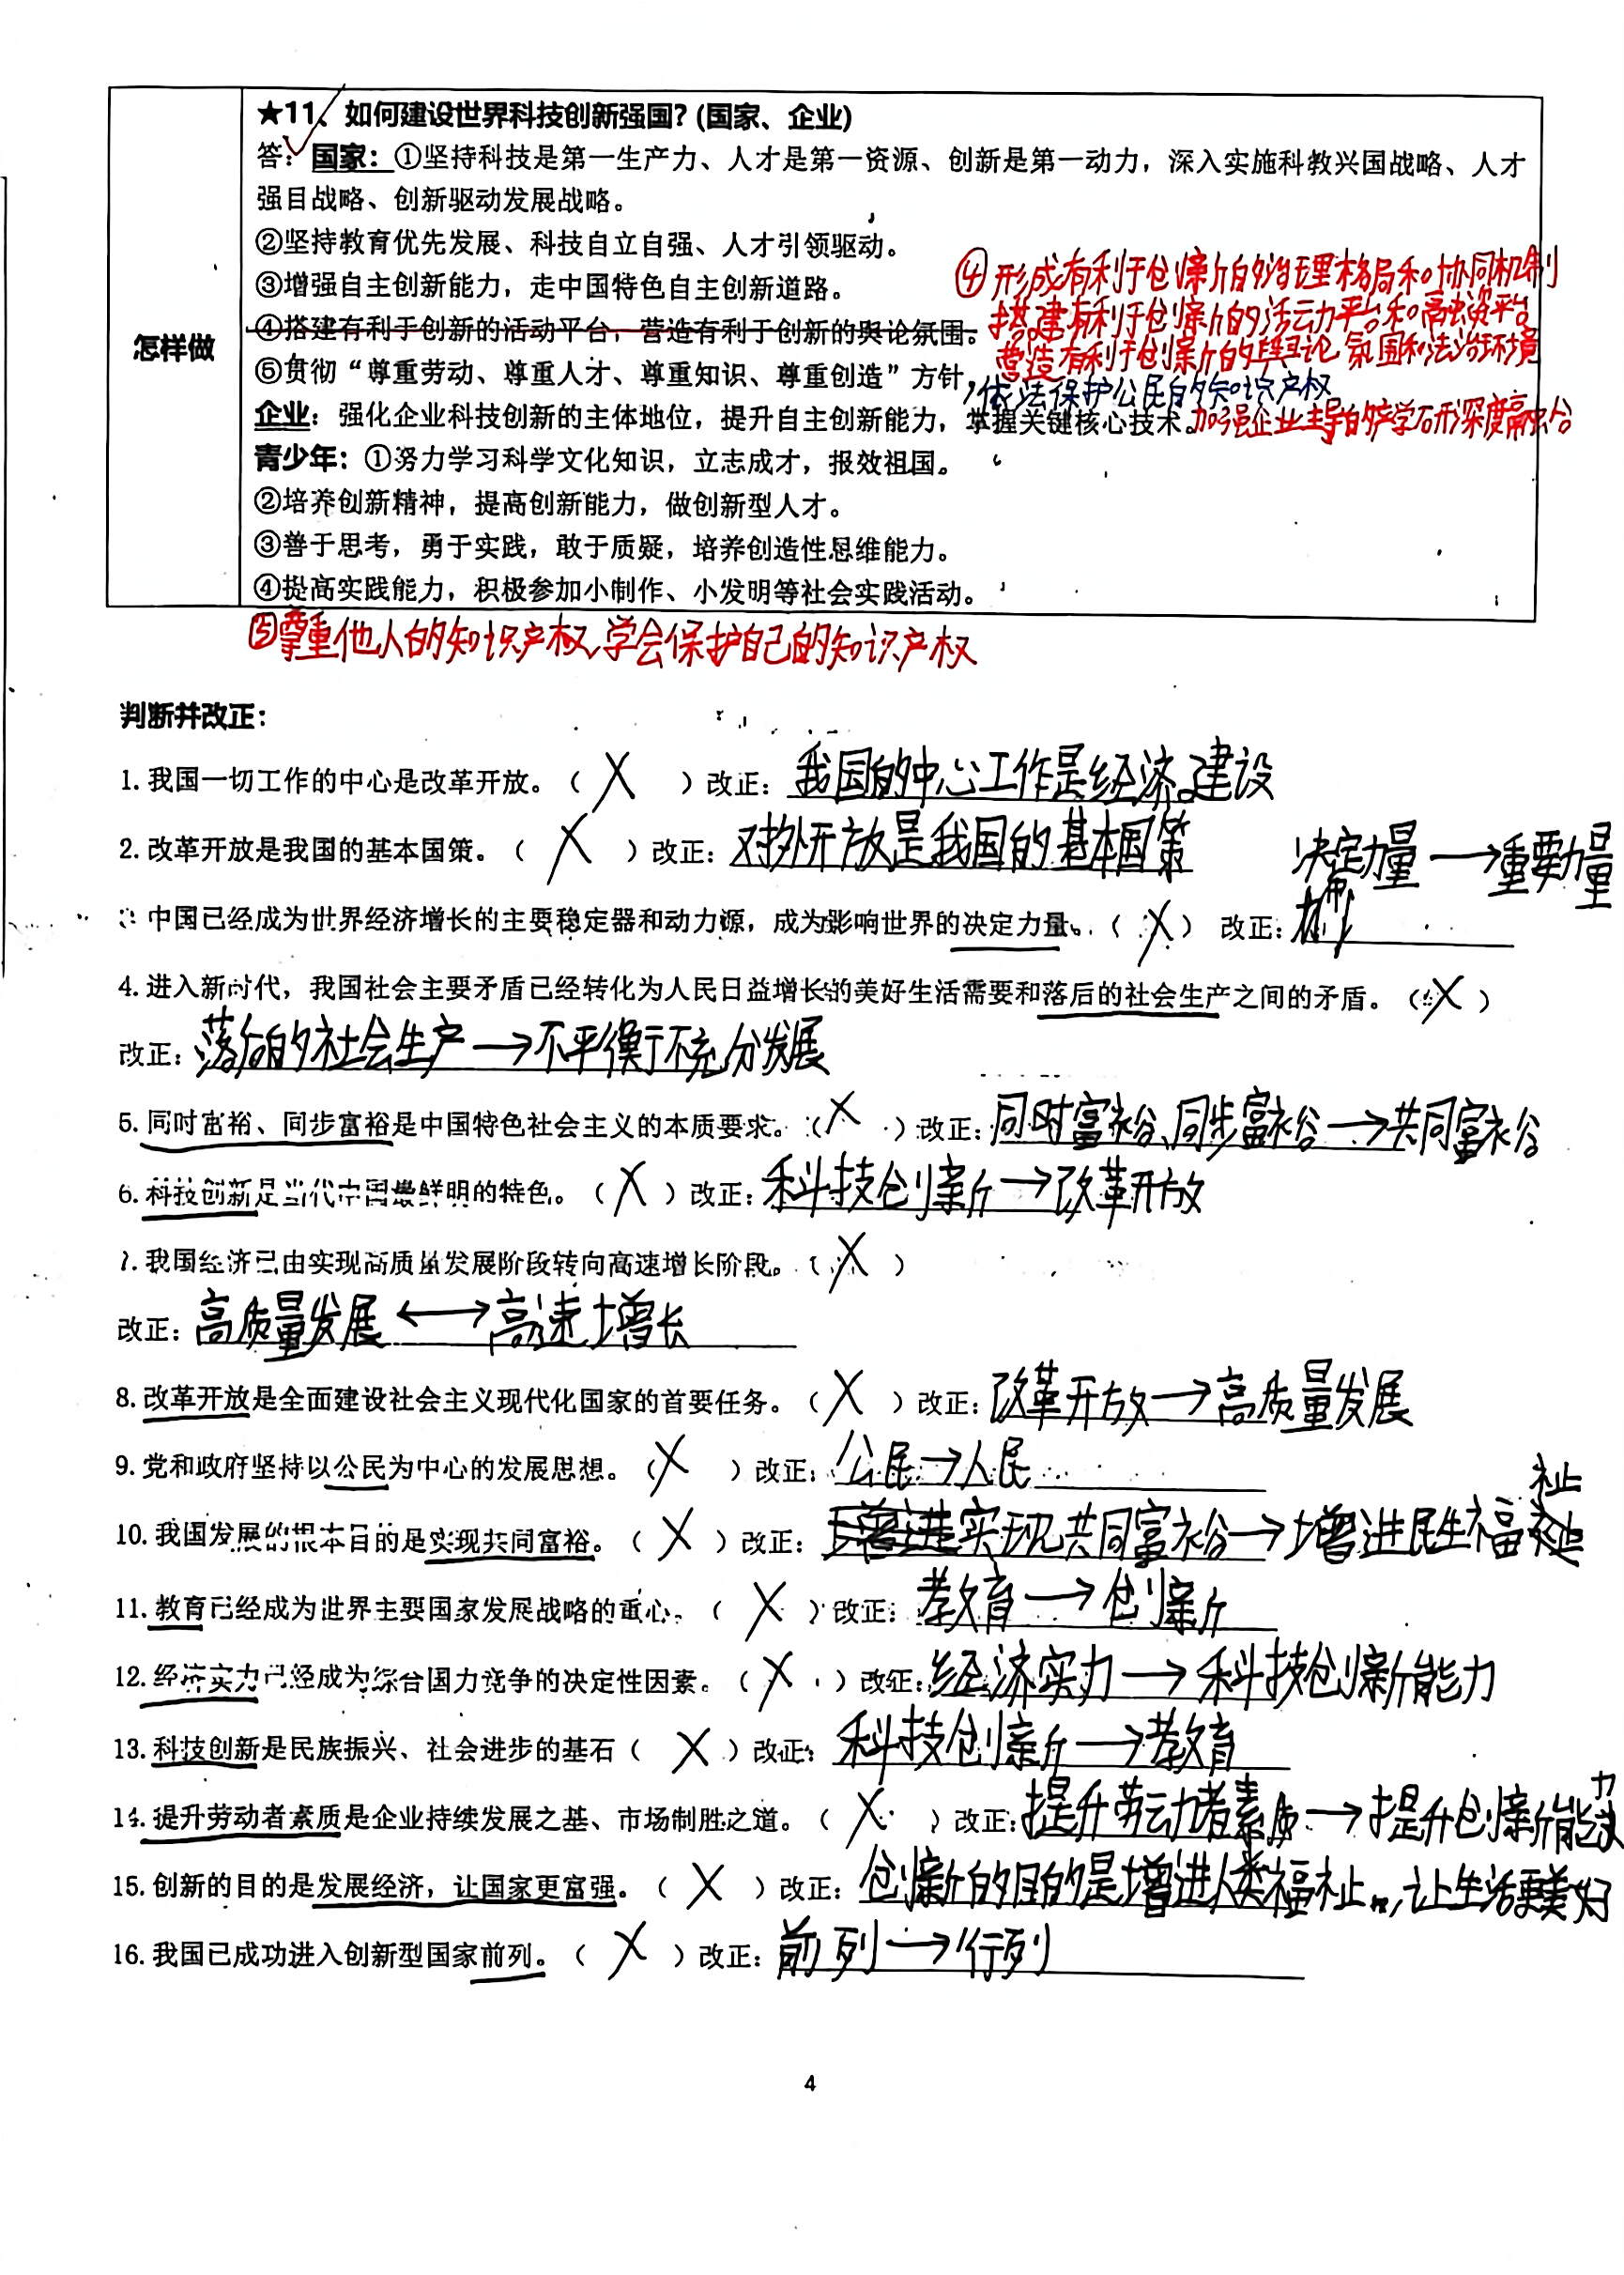 ★11、如何建设世界科技创新强国？(国家、企业)
答：国家：①坚持科技是第一生产力、人才是第一资源、创新是第一动力，深入实施科教兴国战略、人才
强目战略、创新驱动发展战略。
②坚持教育优先发展、科技自立自强、人才引领驱动。
③增强自主创新能力，走中国特色自主创新道路。
④形成有利于创新的治理格局和协同机制
④搭建有利于创新的活动平台，营造有利于创新的舆论氛围。
搭建有利于创新的活动平台和融资平台
营造有利于创新的舆论氛围和法治环境
怎样做
⑤贯彻“尊重劳动、尊重人才、尊重知识、尊重创造”方针，依法保护公民的知识产权
企业：强化企业科技创新的主体地位，提升自主创新能力，掌握关键核心技术。加强企业主导的产学研深度融合
青少年：①努力学习科学文化知识，立志成才，报效祖国。
②培养创新精神，提高创新能力，做创新型人才。
③善于思考，勇于实践，敢于质疑，培养创造性思维能力。
④提高实践能力，积极参加小制作、小发明等社会实践活动。
⑤尊重他人的知识产权、学会保护自己的知识产权
判断并改正：
1.我国一切工作的中心是改革开放。（ X ）改正：我国的中心工作是经济建设
2.改革开放是我国的基本国策。（ X ）改正：对外开放是我国的基本国策
决定力量→重要力量
中国已经成为世界经济增长的主要稳定器和动力源，成为影响世界的决定力量。（ X ） 改正：
4.进入新时代，我国社会主要矛盾已经转化为人民日益增长的美好生活需要和落后的社会生产之间的矛盾。（ X ）
改正：落后的社会生产→不平衡不充分发展
5.同时富裕、同步富裕是中国特色社会主义的本质要求。（ X ）改正：同时富裕、同步富裕→共同富裕
6.科技创新是当代中国最鲜明的特色。（ X ）改正：科技创新→改革开放
7.我国经济已由实现高质量发展阶段转向高速增长阶段。（ X ）
改正：高质量发展↔高速增长
8.改革开放是全面建设社会主义现代化国家的首要任务。（ X ）改正：改革开放→高质量发展
9.党和政府坚持以公民为中心的发展思想。（ X ）改正：公民→人民
10.我国发展的根本目的是实现共同富裕。（ X ）改正：实现共同富裕→增进民生福祉
11.教育已经成为世界主要国家发展战略的重心。（ X ）改正：教育→创新
12.经济实力已经成为综合国力竞争的决定性因素。（ X ）改正：经济实力→科技创新能力
13.科技创新是民族振兴、社会进步的基石（ X ）改正：科技创新→教育
14.提升劳动者素质是企业持续发展之基、市场制胜之道。（ X ）改正：提升劳动者素质→提升创新能力
15.创新的目的是发展经济，让国家更富强。（ X ）改正：创新的目的是增进人类福祉，让生活更美好
16.我国已成功进入创新型国家前列。（ X ）改正：前列→行列
4